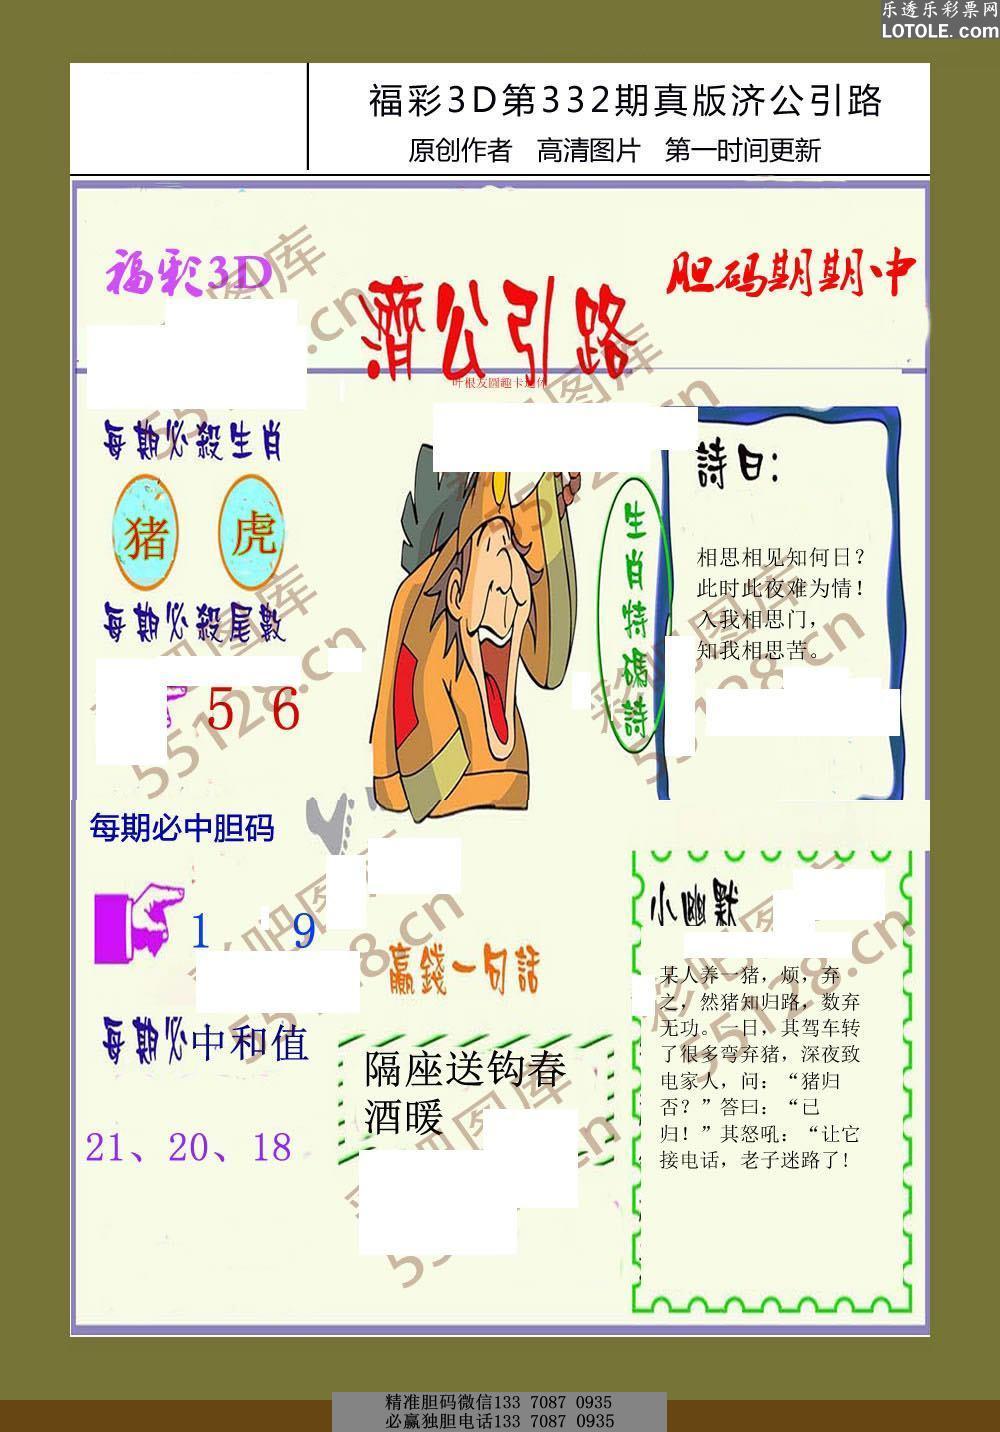 乐透乐彩票网
LOTOLE.com
福彩3D第332期真版济公引路
原创作者 高清图片 第一时间更新
福彩3D
胆码期期中
濟公引路
叶根友圆趣卡通体
每期必殺生肖
猪 虎
每期必殺尾數
5 6
生肖特碼詩
詩曰:
相思相见知何日?
此时此夜难为情!
入我相思门,
知我相思苦。
每期必中胆码
1 9
每期必中和值
21、20、18
赢錢一句話
隔座送钩春
酒暖
小幽默
某人养一猪，烦，弃
之，然猪知归路，数弃
无功。一日，其驾车转
了很多弯弃猪，深夜致
电家人，问：“猪归
否？”答曰：“已
归！”其怒吼：“让它
接电话，老子迷路了!
彩吧图库
55128.cn
精准胆码微信133 7087 0935
必赢独胆电话133 7087 0935